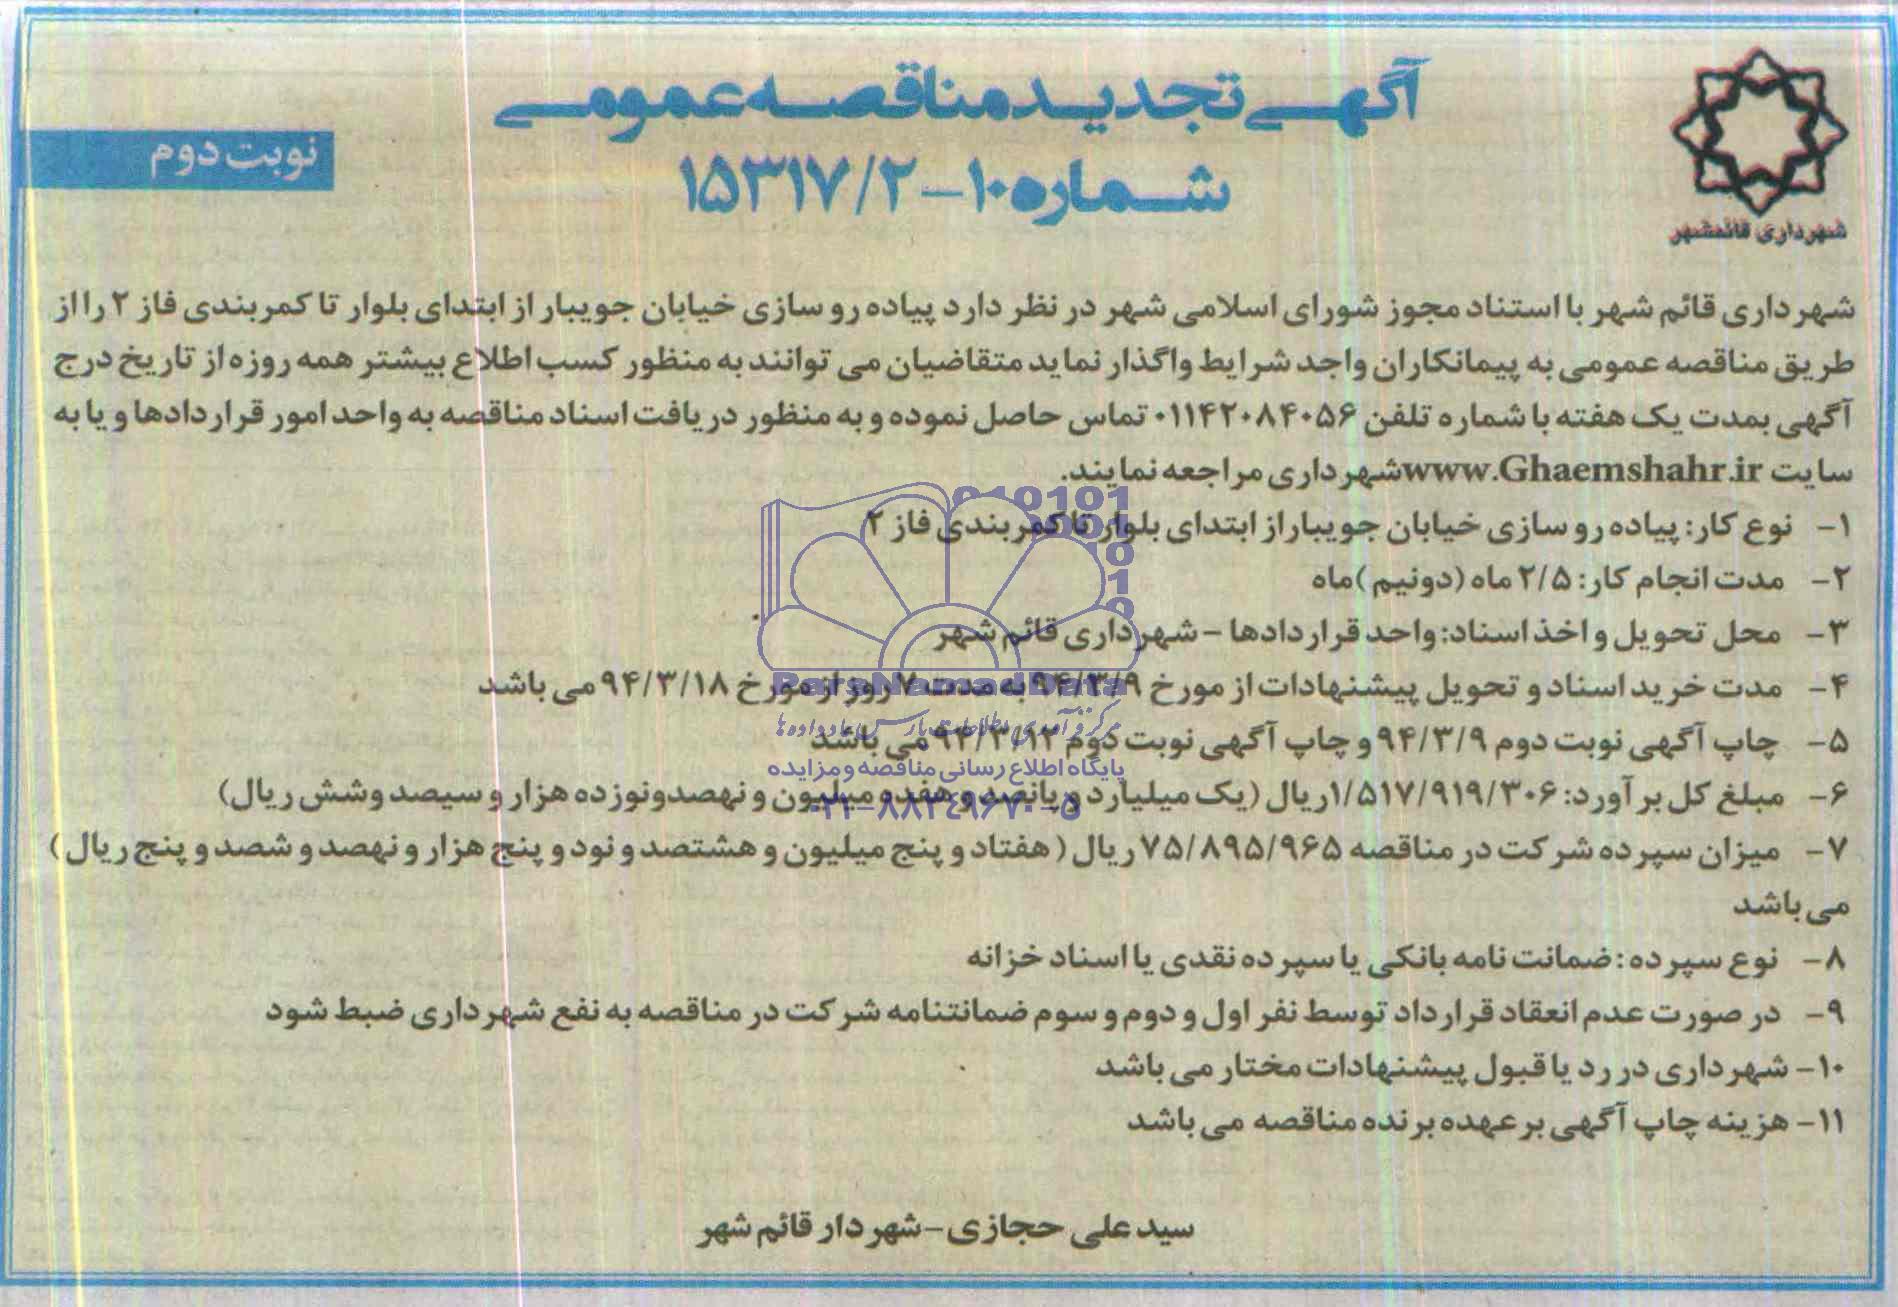 آگهی تجدید مناقصه عمومی
شماره ۱۰-۱۵۳۱۷/۲
نوبت دوم
شهرداری قائمشهر
شهرداری قائم شهر با استناد مجوز شورای اسلامی شهر در نظر دارد پیاده رو سازی خیابان جویبار از ابتدای بلوار تا کمربندی فاز ۲ را از
طریق مناقصه عمومی به پیمانکاران واجد شرایط واگذار نماید متقاضیان می توانند به منظور کسب اطلاع بیشتر همه روزه از تاریخ درج
آگهی بمدت یک هفته با شماره تلفن ۰۱۱۴۲۰۸۴۰۵۶ تماس حاصل نموده و به منظور دریافت اسناد مناقصه به واحد امور قراردادها و یا به
سایت www.Ghaemshahr.ir شهرداری مراجعه نمایند.
۱- نوع کار: پیاده رو سازی خیابان جویبار از ابتدای بلوار تا کمربندی فاز ۲
۲- مدت انجام کار: ۲/۵ ماه (دونیم) ماه
۳- محل تحویل و اخذ اسناد: واحد قراردادها - شهرداری قائم شهر
۴- مدت خرید اسناد و تحویل پیشنهادات از مورخ ۹۴/۳/۹ به مدت ۷ روز از مورخ ۹۴/۳/۱۸ می باشد
۵- چاپ آگهی نوبت دوم ۹۴/۳/۹ و چاپ آگهی نوبت دوم ۹۴/۳/۱۲ می باشد
۶- مبلغ کل برآورد: ۱/۵۱۷/۹۱۹/۳۰۶ ریال (یک میلیارد و پانصد و هفده میلیون و نهصد و نوزده هزار و سیصد و شش ریال)
۷- میزان سپرده شرکت در مناقصه ۷۵/۸۹۵/۹۶۵ ریال (هفتاد و پنج میلیون و هشتصد و نود و پنج هزار و نهصد و شصد و پنج ریال)
می باشد
۸- نوع سپرده: ضمانت نامه بانکی یا سپرده نقدی یا اسناد خزانه
۹- در صورت عدم انعقاد قرارداد توسط نفر اول و دوم و سوم ضمانتنامه شرکت در مناقصه به نفع شهرداری ضبط شود
۱۰- شهرداری در رد یا قبول پیشنهادات مختار می باشد
۱۱- هزینه چاپ آگهی بر عهده برنده مناقصه می باشد
سید علی حجازی - شهردار قائم شهر
ParsNamadData
مرکز فرآوری اطلاعات پارس نماد داده ها
پایگاه اطلاع رسانی مناقصه و مزایده
۰۲۱-۸۸۳۴۹۶۷۰-۵